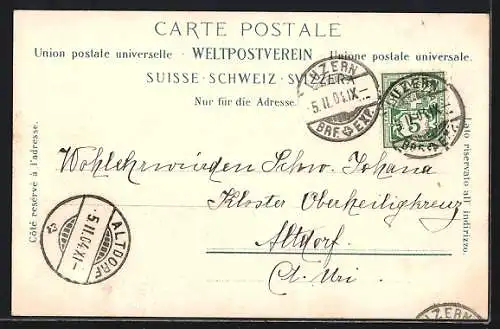 CARTE POSTALE
Union postale universelle - WELTPOSTVEREIN - Unione postale universale.
SUISSE · SCHWEIZ · SVIZZERA
Nur für die Adresse.
LUZERN
5.II.04.IX
BRF. EXP.
LUZERN
5.II.04.IX
BRF. EXP.
5
Wohlehrwürden Schw. Johana
Kloster Oberheiligkreuz
Altdorf.
Ct. Uri
Côté reservé à l'adresse.
Lato riservato all' indirizzo.
ALTDORF
5.II.04.XI
LUZERN